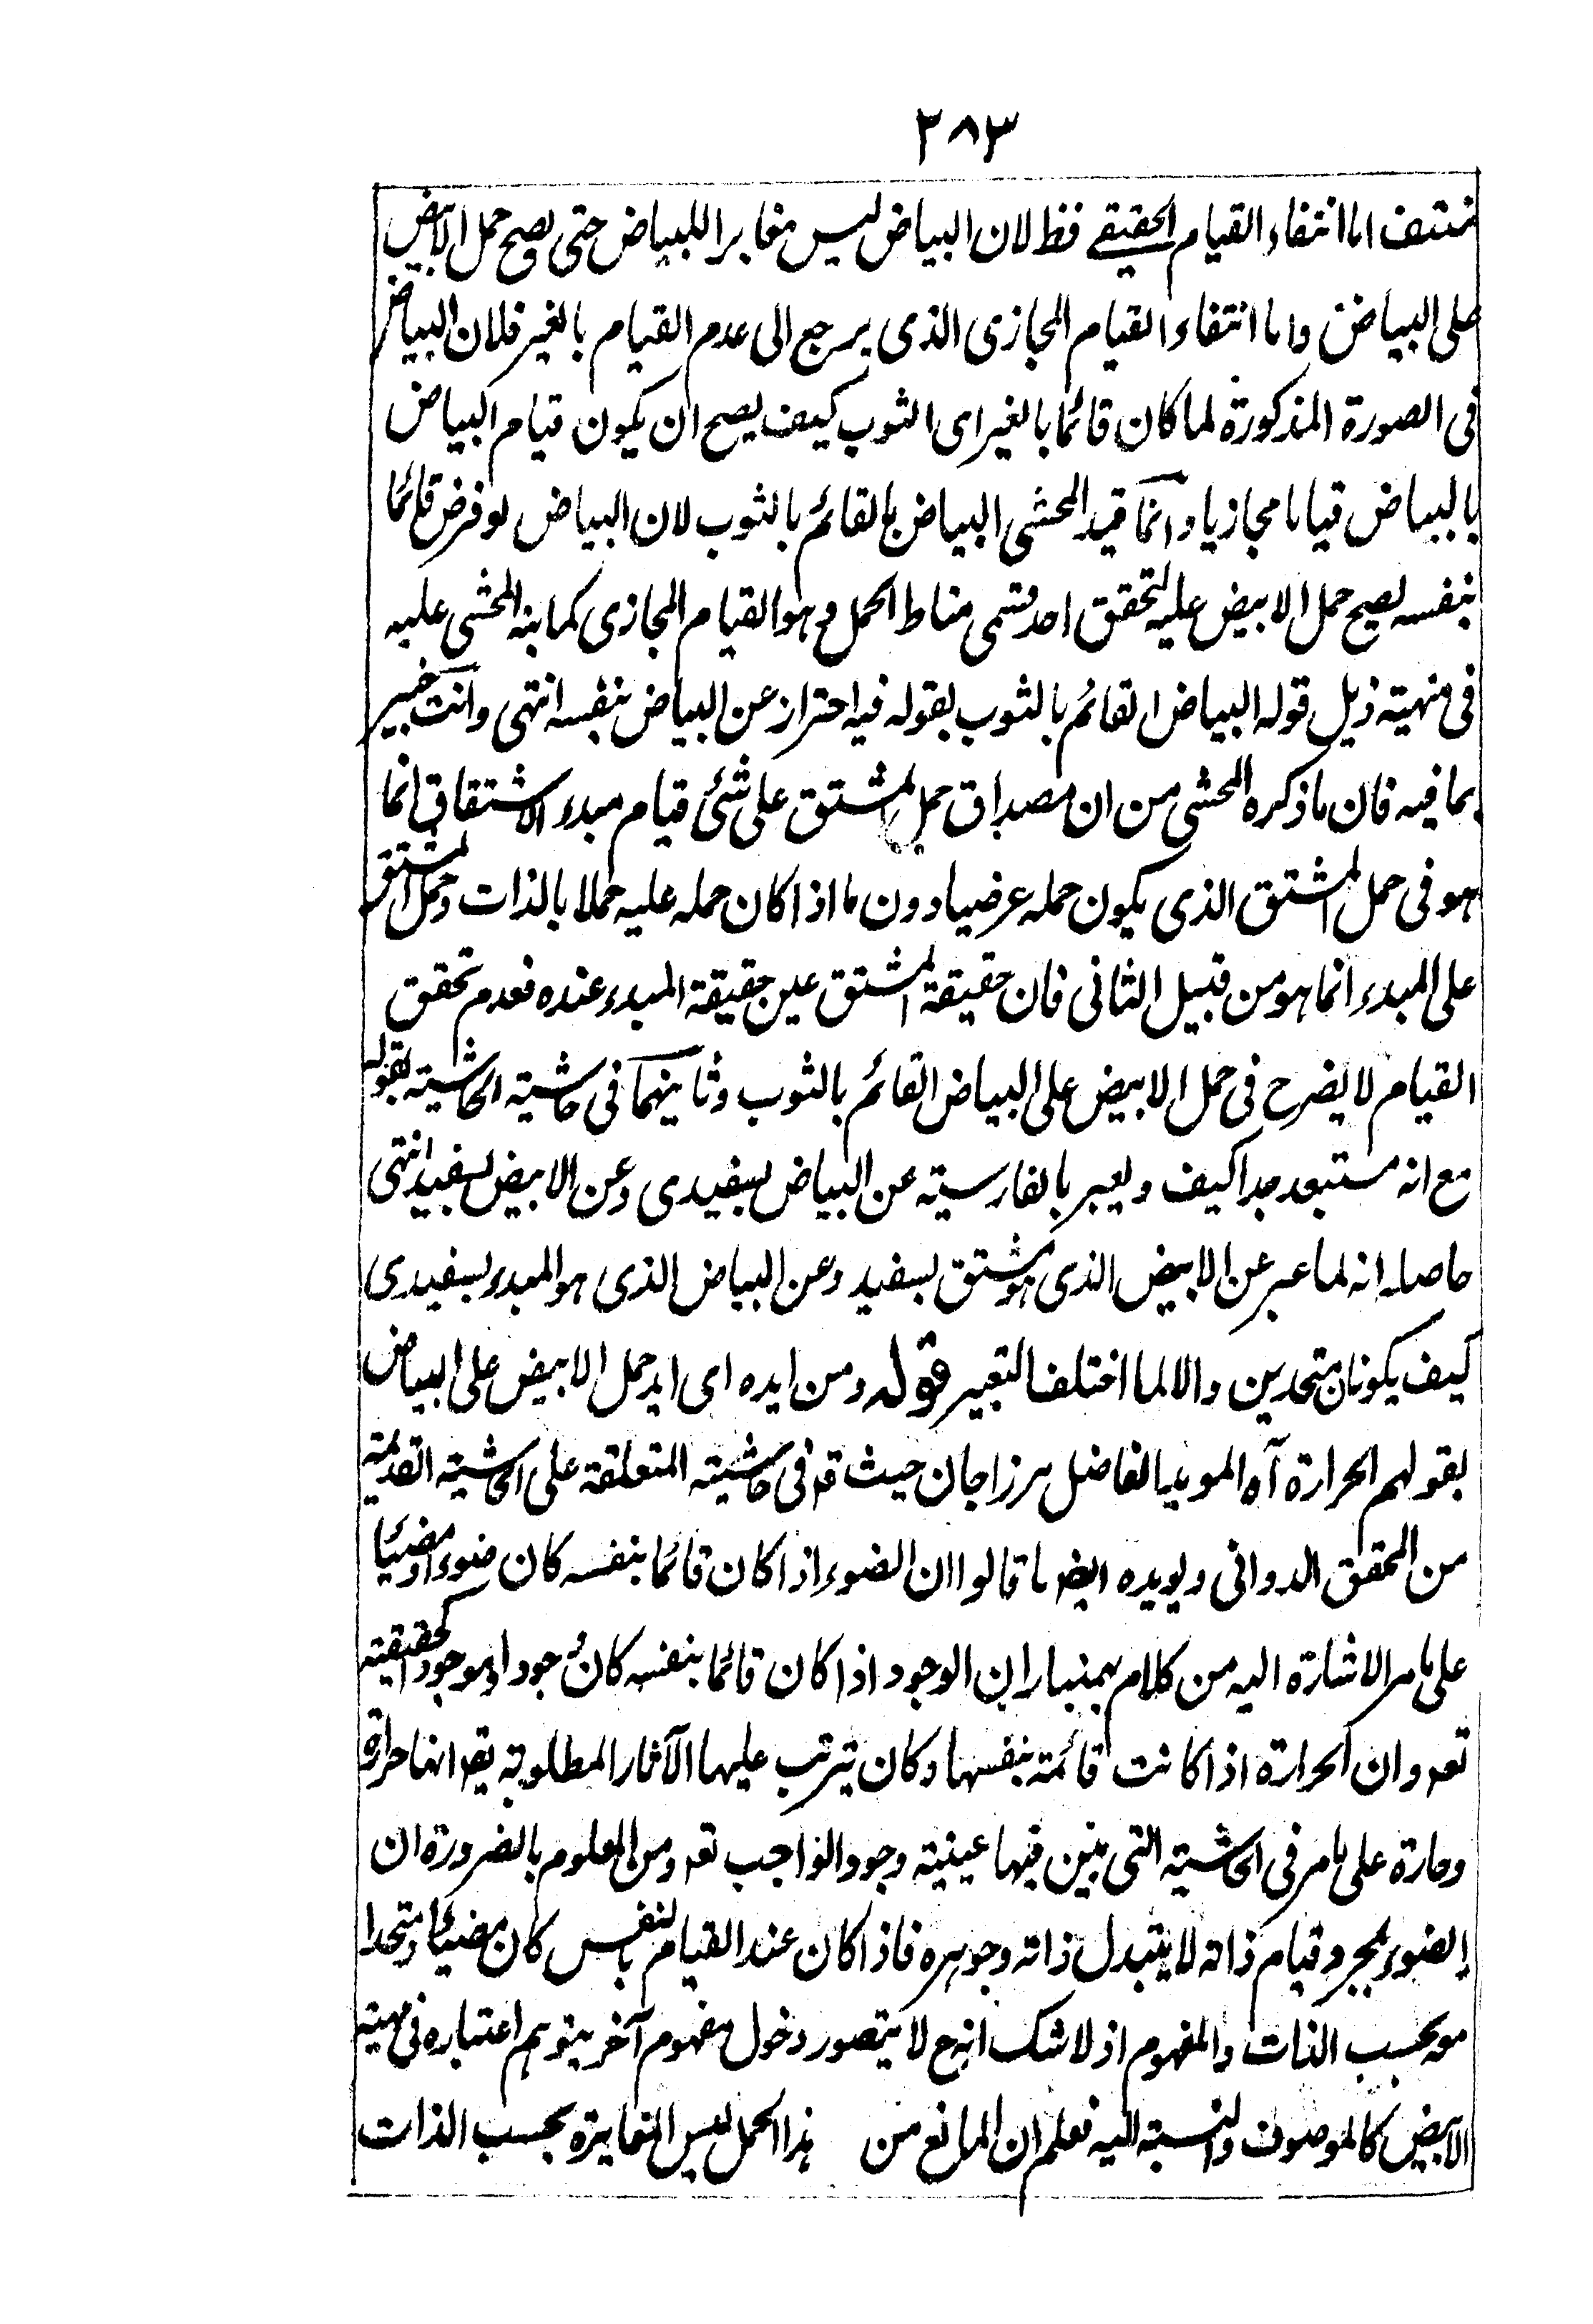 ٢٨٣
منتف اما انتفاء القيام الحقيقي فظ لان البياض ليس مغايرا للبياض حتى يصح حمل الابيض
على البياض واما انتفاء القيام المجازى الذى يرجع الى عدم القيام بالغير فلان البياض
فى الصورة المذكورة لما كان قائما بالغير اى الثوب كيف يصح ان يكون قيام البياض
بالبياض قياما مجازيا وانما قيد المحشى البياض بالقائم بالثوب لان البياض لو فرض قائما
بنفسه يصح حمل الابيض عليه لتحقق احد قسمى مناط الحمل وهو القيام المجازى كما نبه المحشى عليه
فى منهيته ذيل قوله البياض القائم بالثوب بقوله فيه احتراز عن البياض بنفسه انتهى وانت خبير
بما فيه فان ما ذكره المحشى من ان مصداق حمل المشتق على شئ قيام مبدء الاشتقاق انما
هو فى حمل المشتق الذى يكون حمله عرضيا دون ما اذا كان حمله عليه حملا بالذات وحمل المشتق
على المبدء انما هو من قبيل الثانى فان حقيقة المشتق عين حقيقة المبدء عنده فعدم تحقق
القيام لا يضر ح فى حمل الابيض على البياض القائم بالثوب وثانيهما فى حاشية الحاشية بقوله
مع انه مستبعد جدا كيف ويعبر بالفارسية عن البياض بسفيدى وعن الابيض بسفيد انتهى
حاصله انه لما عبر عن الابيض الذى هو مشتق بسفيد وعن البياض الذى هو المبدء بسفيدى
كيف يكونان متحدين والا لما اختلف التعبير قوله ومن ايده اى ايد حمل الابيض على البياض
بقولهم الحرارة آه المويد الفاضل مرزا جان حيث قه فى حاشيته المتعلقة على الحاشية القديمة
من المحقق الدوانى ويويده ايضه ما قالوا ان الضوء اذا كان قائما بنفسه كان ضوءا ومضيئا
على ما مر الاشارة اليه من كلام بهمنيار ان الوجود اذا كان قائما بنفسه كان وجودا وموجودا لحقيقته
تعه وان الحرارة اذا كانت قائمة بنفسها وكان يترتب عليها الآثار المطلوبة يقه انها حرارة
وحارة على ما مر فى الحاشية التى بين فيها عينية وجود الواجب تعه ومن المعلوم بالضرورة ان
الضوء بمجرد قيام ذاته لا يتبدل ذاته وجوهره فاذا كان عند القيام بالنفس كان مضيئا ومتحدا
معه بحسب الذات والمفهوم اذ لا شك انه ح لا يتصور دخول مفهوم آخر يتوهم اعتباره فى مهية
الابيض كالموصوف والنسبة اليه فعلم ان المانع من هذا الحمل ليس التغايرة بحسب الذات